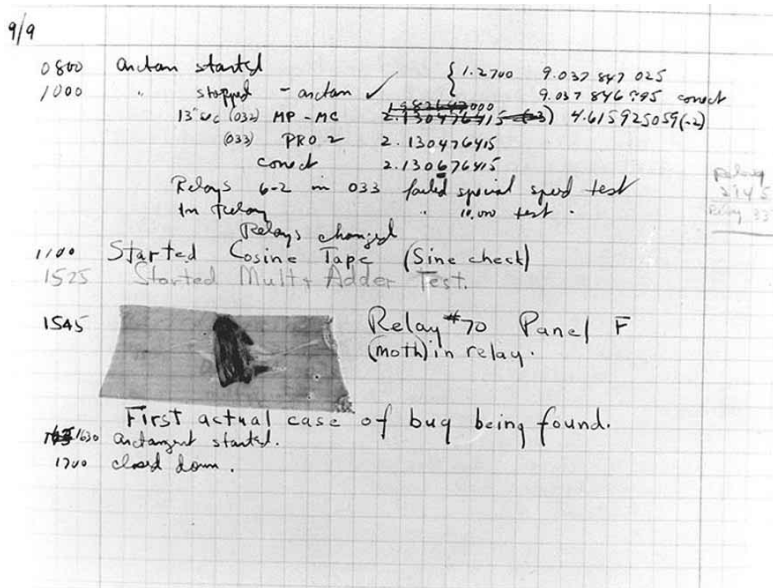 9/9
0800 anctan started { 1.2700 9.037 847 025
1000 " stopped - anctan ✓ 9.037 846 995 conect
13"uc (032) MP - MC 2.130476415 (-3) 4.615925059(-2)
(033) PRO 2 2.130476415
conect 2.130676415
Relays 6-2 in 033 failed special speed test
In Relay " 10,000 test.
Relay
2145
Relay 33
Relays changed
1100 Started Cosine Tape (Sine check)
1525 Started Mult + Adder Test.
1545 Relay #70 Panel F
(moth) in relay.
First actual case of bug being found.
1630 anctangent started.
1700 closed down.